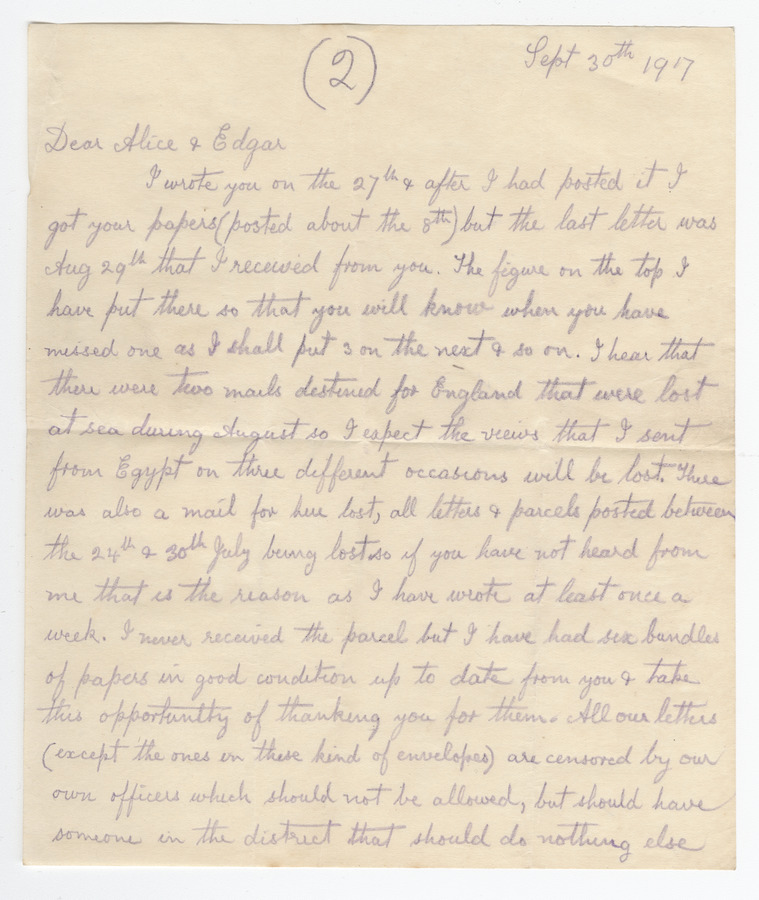 (2)
Sept 30th 1917
Dear Alice & Edgar
I wrote you on the 27th & after I had posted it I
got your papers (posted about the 8th) but the last letter was
Aug 29th that I received from you. The figure on the top I
have put there so that you will know when you have
missed one as I shall put 3 on the next & so on. I hear that
there were two mails destined for England that were lost
at sea during August so I expect the views that I sent
from Egypt on three different occasions will be lost. There
was also a mail for here lost, all letters & parcels posted between
the 24th & 30th July being lost so if you have not heard from
me that is the reason as I have wrote at least once a
week. I never received the parcel but I have had six bundles
of papers in good condition up to date from you & take
this opportunity of thanking you for them. All our letters
(except the ones in these kind of envelopes) are censored by our
own officers which should not be allowed, but should have
someone in the district that should do nothing else